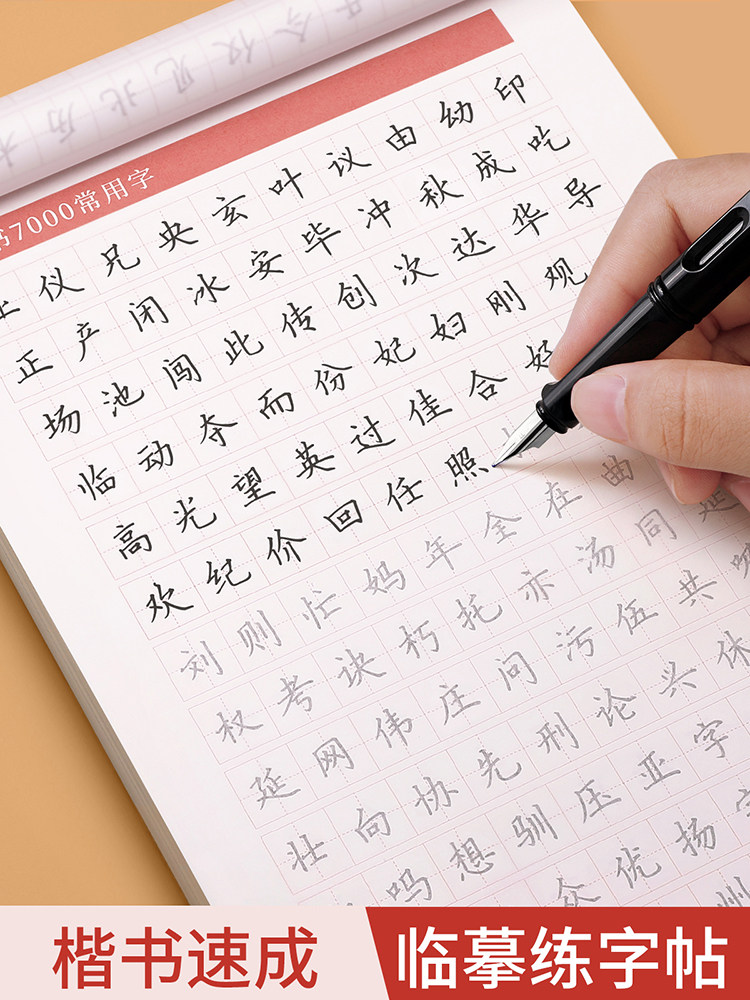 书7000常用字
仪兄央玄叶议由幼印
正产闭冰安毕冲秋成吃
场池闯此传创次达华导
临动夺而份妃妇刚观
高光望英过佳合好
欢纪价回任照
刘则忙妈年全在曲
权考诀朽托亦汤同延
延网伟庄问污伍共
壮向协先刑论兴休
吗想驯压亚字
众优扬
楷书速成
临摹练字帖